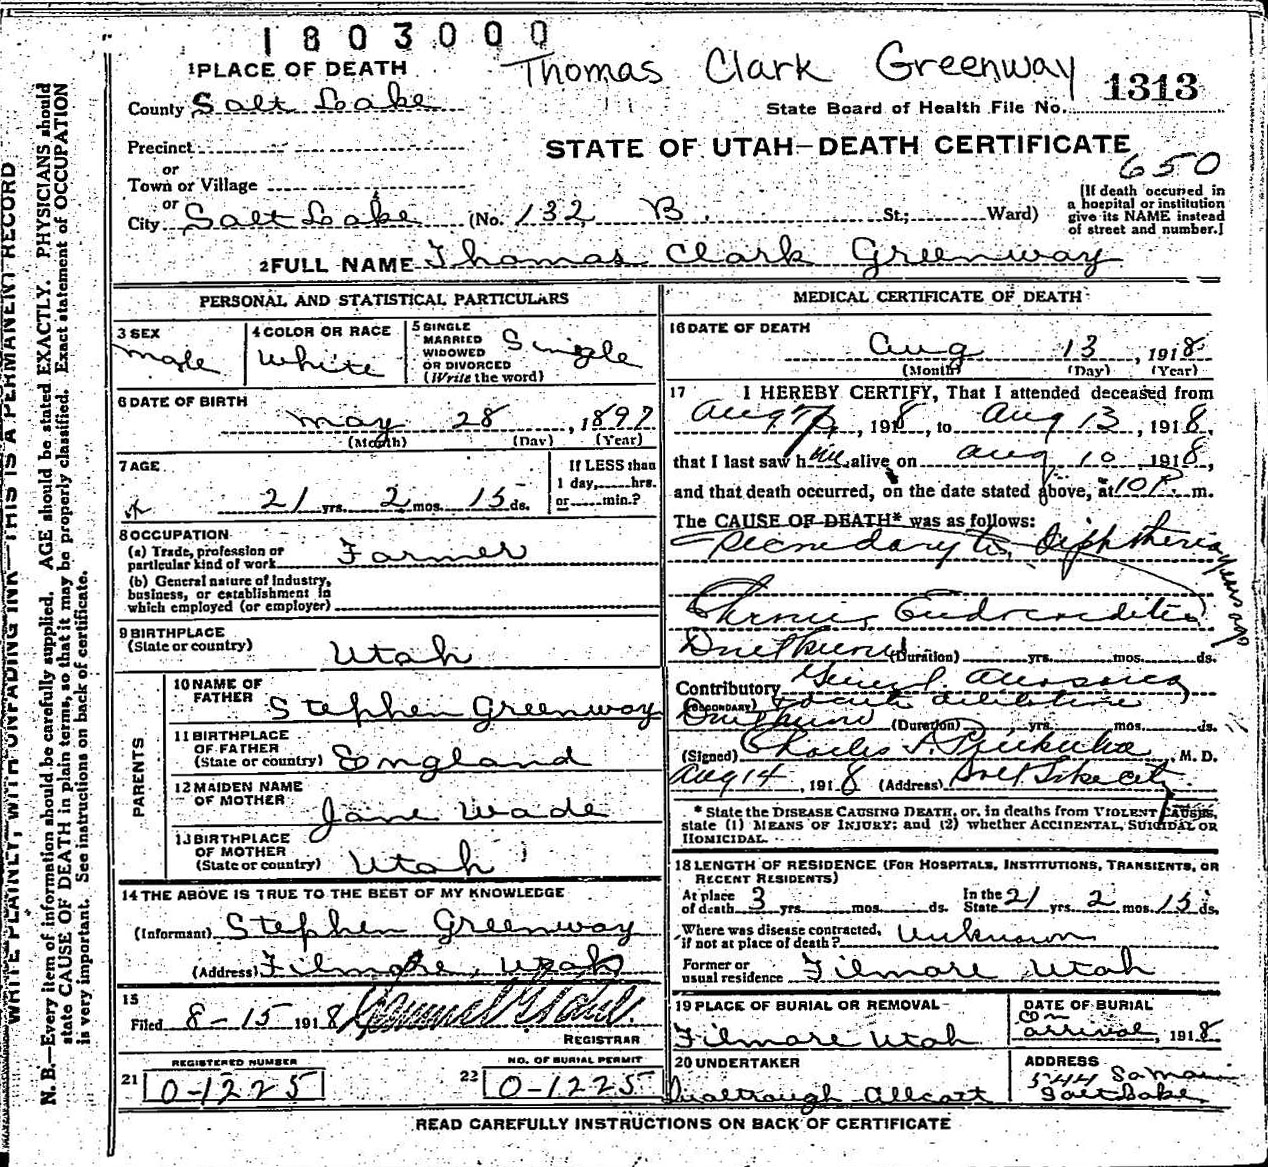 1803000
Thomas Clark Greenway
1 PLACE OF DEATH
1313
County Salt Lake
State Board of Health File No.
Precinct
STATE OF UTAH—DEATH CERTIFICATE
650
or
Town or Village
or
City Salt Lake (No. 132 B. St.; Ward)
[If death occurred in a hospital or institution give its NAME instead of street and number.]
2 FULL NAME Thomas Clark Greenway
PERSONAL AND STATISTICAL PARTICULARS
3 SEX
male
4 COLOR OR RACE
White
5 SINGLE MARRIED WIDOWED OR DIVORCED (Write the word)
Single
6 DATE OF BIRTH
May 28, 1897
(Month) (Day) (Year)
7 AGE
21 yrs. 2 mos. 15 ds.
If LESS than 1 day, hrs. or min.?
8 OCCUPATION
(a) Trade, profession or particular kind of work Farmer
(b) General nature of Industry, business, or establishment in which employed (or employer)
9 BIRTHPLACE
(State or country) Utah
PARENTS
10 NAME OF FATHER Stephen Greenway
11 BIRTHPLACE OF FATHER (State or country) England
12 MAIDEN NAME OF MOTHER Jane Wade
13 BIRTHPLACE OF MOTHER (State or country) Utah
14 THE ABOVE IS TRUE TO THE BEST OF MY KNOWLEDGE
(Informant) Stephen Greenway
(Address) Filmore, Utah
15
Filed 8-15 1918
REGISTRAR
21 REGISTERED NUMBER
0-1225
22 NO. OF BURIAL PERMIT
0-1225
MEDICAL CERTIFICATE OF DEATH
16 DATE OF DEATH
Aug 13, 1918
(Month) (Day) (Year)
17 I HEREBY CERTIFY, That I attended deceased from
Aug 7, 1918, to Aug 13, 1918,
that I last saw him alive on Aug 10 1918,
and that death occurred, on the date stated above, at 10 P. m.
The CAUSE OF DEATH* was as follows:
Secondary to Diphtheria years ago
Chronic Endocarditis
(Duration) yrs. mos. ds.
Contributory General Anasarca
(SECONDARY) acute dilatation
(Duration) yrs. mos. ds.
(Signed) Charles M. D.
Aug 14, 1918 (Address) Salt Lake City
* State the DISEASE CAUSING DEATH, or, in deaths from VIOLENT CAUSES, state (1) MEANS OF INJURY; and (2) whether ACCIDENTAL, SUICIDAL OR HOMICIDAL.
18 LENGTH OF RESIDENCE (FOR HOSPITALS, INSTITUTIONS, TRANSIENTS, OR RECENT RESIDENTS)
At place of death 3 yrs. mos. ds. In the State 21 yrs. 2 mos. 15 ds.
Where was disease contracted, if not at place of death? Unknown
Former or usual residence Filmore Utah
19 PLACE OF BURIAL OR REMOVAL
Filmore Utah
DATE OF BURIAL
on arrival, 1918
20 UNDERTAKER
ADDRESS
Salt Lake
READ CAREFULLY INSTRUCTIONS ON BACK OF CERTIFICATE
WRITE PLAINLY, WITH UNFADING INK—THIS IS A PERMANENT RECORD
N. B.—Every item of information should be carefully supplied. AGE should be stated EXACTLY. PHYSICIANS should
state CAUSE OF DEATH in plain terms, so that it may be properly classified. Exact statement of OCCUPATION
is very important. See instructions on back of certificate.